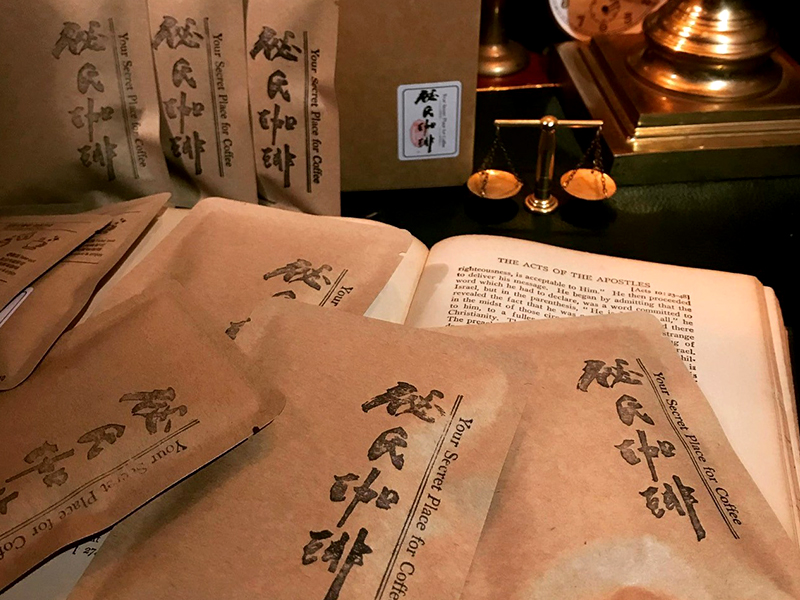 秘氏咖啡
Your Secret Place for Coffee
秘氏咖啡
Your Secret Place for Coffee
秘氏咖啡
Your Secret Place for Coffee
秘氏咖啡
THE ACTS OF THE APOSTLES
[Acts 10: 23-48]
righteousness, is acceptable to Him." He then proceeded
to deliver his message. He began by admitting that the
word which he had to declare, was a word committed to
Israel, but in the parenthesis, "He is all," he
revealed the fact that he there
in the midst of those strange
Christianity, to a of
The
秘
Your
秘氏咖
Your Secret Place for
秘氏咖啡
Your Secret Place for Coffee
秘氏咖啡
Your Secret Place for Coffee